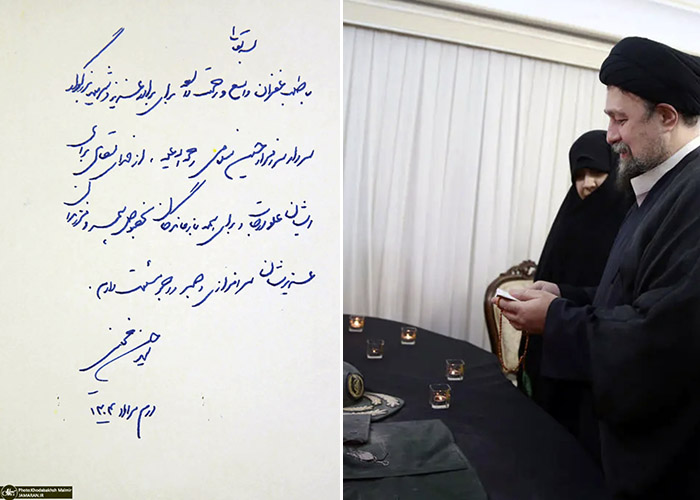 بسمه تعالی
با طلب غفران واسع و رحمت واسعه برای برادر عزیز و شهید بزرگوار
سردار سرافراز حسین سلامی رحمة الله علیه، از خدای متعالی برای
ایشان علو درجات و برای همه بازماندگان بخصوص همسر و فرزندان
عزیزشان سرافرازی و صبر و اجر مسئلت دارم.
سید حسن خمینی
دوم مرداد ۱۴۰۴
Photo:Khodabakhsh Malmir
JAMARAN.IR